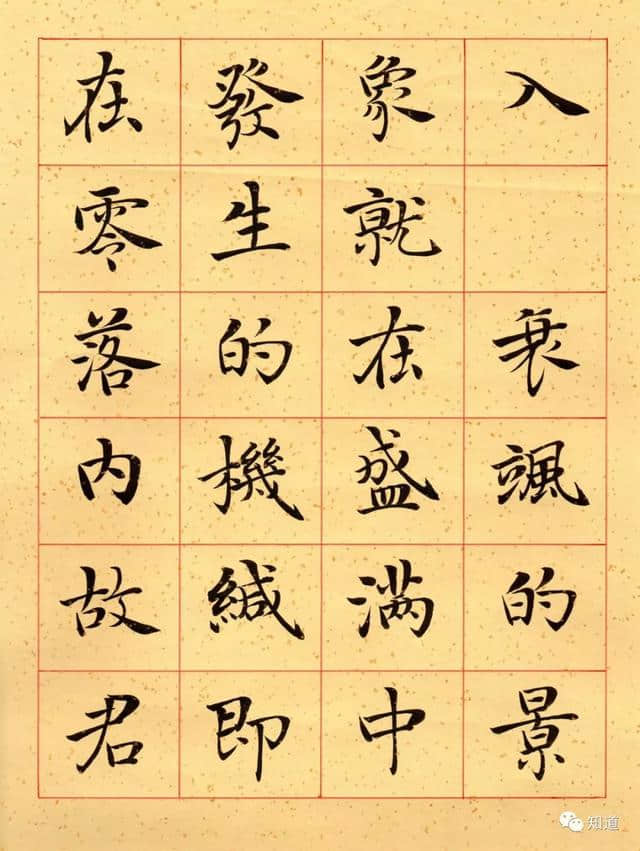 入 衰颯的景
象就在盛满中
發生的機緘即
在零落内故君
知道